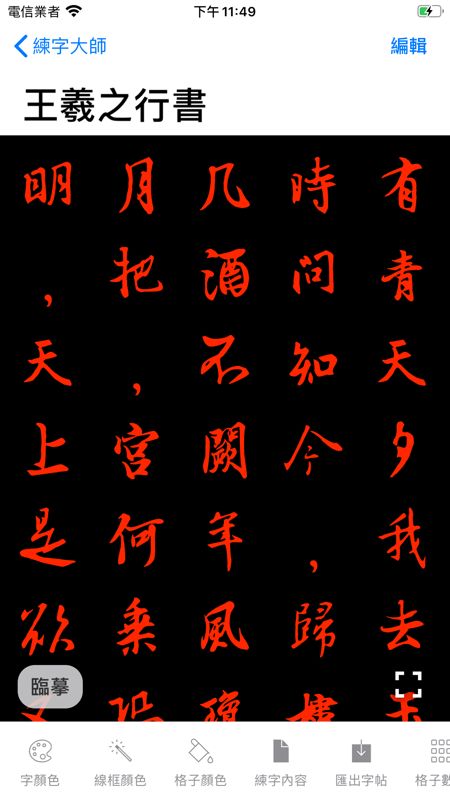 電信業者 下午 11:49
練字大師 編輯
王羲之行書
明月几時有
，把酒問青
天，不知天
上宮闕今夕
是何年，我
欲乘風歸去
臨摹
字顏色 線框顏色 格子顏色 練字內容 匯出字帖 格子數